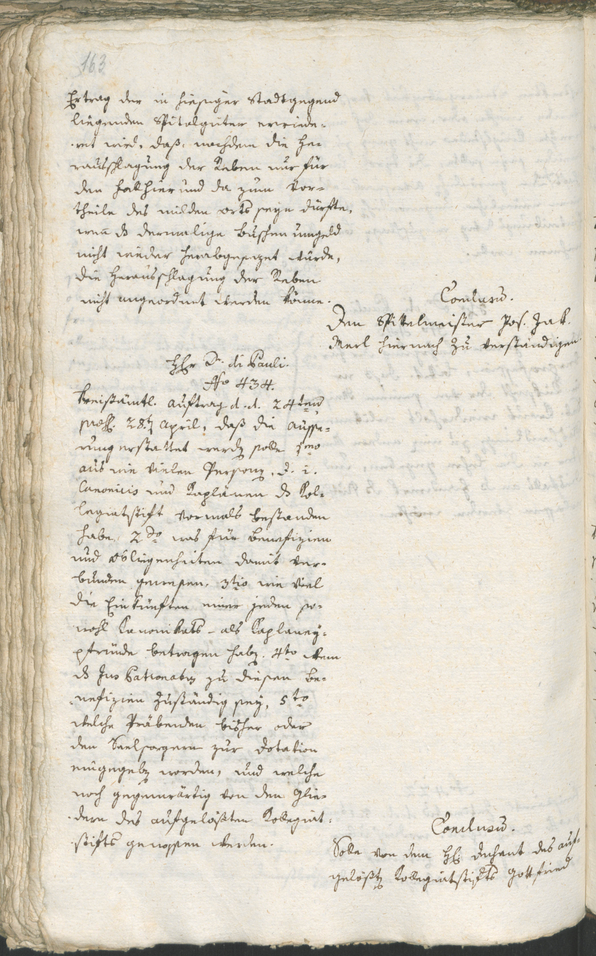 163
Ertrag der in hiesiger Stadtgegend
liegenden Spitalgüter erwiede-
ret wird, daß, nachdem die He-
rausschlagung der Reben nur für
den Fall hier und da zum Vor-
theile des milden Orts seyn dürfte,
wenn ds dermalige Buschenumgeld
nicht wieder herabgesezt würde,
die Herausschlagung der Reben
nicht angeordnet werden könne.
Conclusū.
Dem Spitelmeister Jos. Jak.
Merl hiernach zu verständigen
Hhr Di. di Pauli.
No 434.
Kreisämtl. Auftrag d. d. 24ten
praes. 28t April, daß die Auße-
rung erstattet werde solle 1mo
aus wie vielen Personen, d. i.
Canonicis und Kaplänen ds Kol-
legiatstift vormals bestanden
habe. 2do was für Benefizien
und Obliegenheiten damit ver-
bunden gewesen, 3tio wie viel
die Einkünften einer jeden so-
wohl Kanonikats- als Kaplaney-
pfründe betragen habe. 4to wem
ds Jus Pationatus zu diesen Be-
nefizien zuständig sey, 5to
welche Präbenden bisher oder
den Seelsorgern zur Dotation
eingegeben worden, und welche
noch gegenwärtig von den Glie-
dern des aufgelößten Kolegiat-
stifts genossen werden.
Conclusū.
Solle von dem H Dechant des auf-
gelößten Kolegiatstifts Gottfried